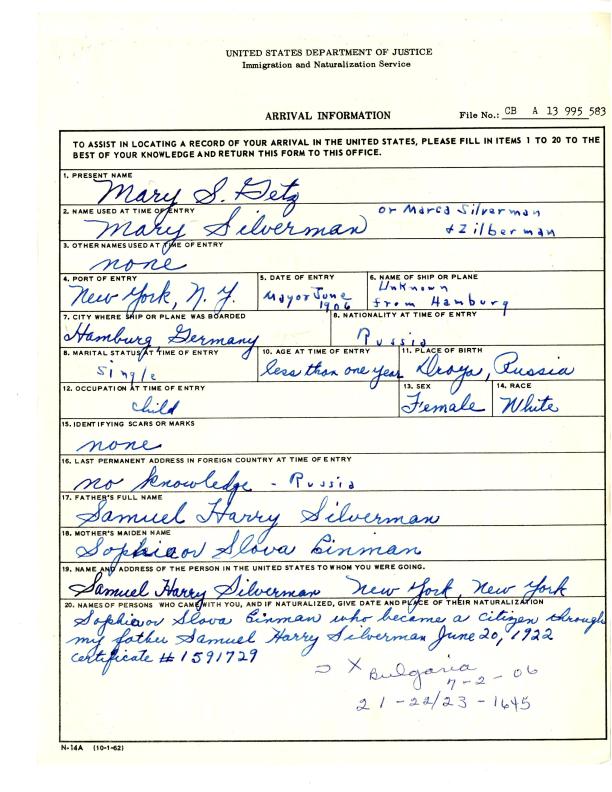 UNITED STATES DEPARTMENT OF JUSTICE
Immigration and Naturalization Service
ARRIVAL INFORMATION
File No.: CB A 13 995 583
TO ASSIST IN LOCATING A RECORD OF YOUR ARRIVAL IN THE UNITED STATES, PLEASE FILL IN ITEMS 1 TO 20 TO THE
BEST OF YOUR KNOWLEDGE AND RETURN THIS FORM TO THIS OFFICE.
1. PRESENT NAME
Mary S. Getz
2. NAME USED AT TIME OF ENTRY
Mary Silverman or Marca Silverman
+ Zilberman
3. OTHER NAMES USED AT TIME OF ENTRY
none
4. PORT OF ENTRY
New York, N. Y.
5. DATE OF ENTRY
May or June
1906
6. NAME OF SHIP OR PLANE
Unknown
from Hamburg
7. CITY WHERE SHIP OR PLANE WAS BOARDED
Hamburg, Germany
8. NATIONALITY AT TIME OF ENTRY
Russia
8. MARITAL STATUS AT TIME OF ENTRY
single
10. AGE AT TIME OF ENTRY
less than one year
11. PLACE OF BIRTH
Droya, Russia
12. OCCUPATION AT TIME OF ENTRY
child
13. SEX
Female
14. RACE
White
15. IDENTIFYING SCARS OR MARKS
none
16. LAST PERMANENT ADDRESS IN FOREIGN COUNTRY AT TIME OF ENTRY
no knowledge - Russia
17. FATHER'S FULL NAME
Samuel Harry Silverman
18. MOTHER'S MAIDEN NAME
Sophia or Slova Einman
19. NAME AND ADDRESS OF THE PERSON IN THE UNITED STATES TO WHOM YOU WERE GOING.
Samuel Harry Silverman New York, New York
20. NAMES OF PERSONS WHO CAME WITH YOU, AND IF NATURALIZED, GIVE DATE AND PLACE OF THEIR NATURALIZATION
Sophia or Slova Einman who became a citizen through
my father Samuel Harry Silverman June 20, 1922
certificate # 1591729
X Bulgaria
7-2-06
21-22/23-1645
N-14A (10-1-62)